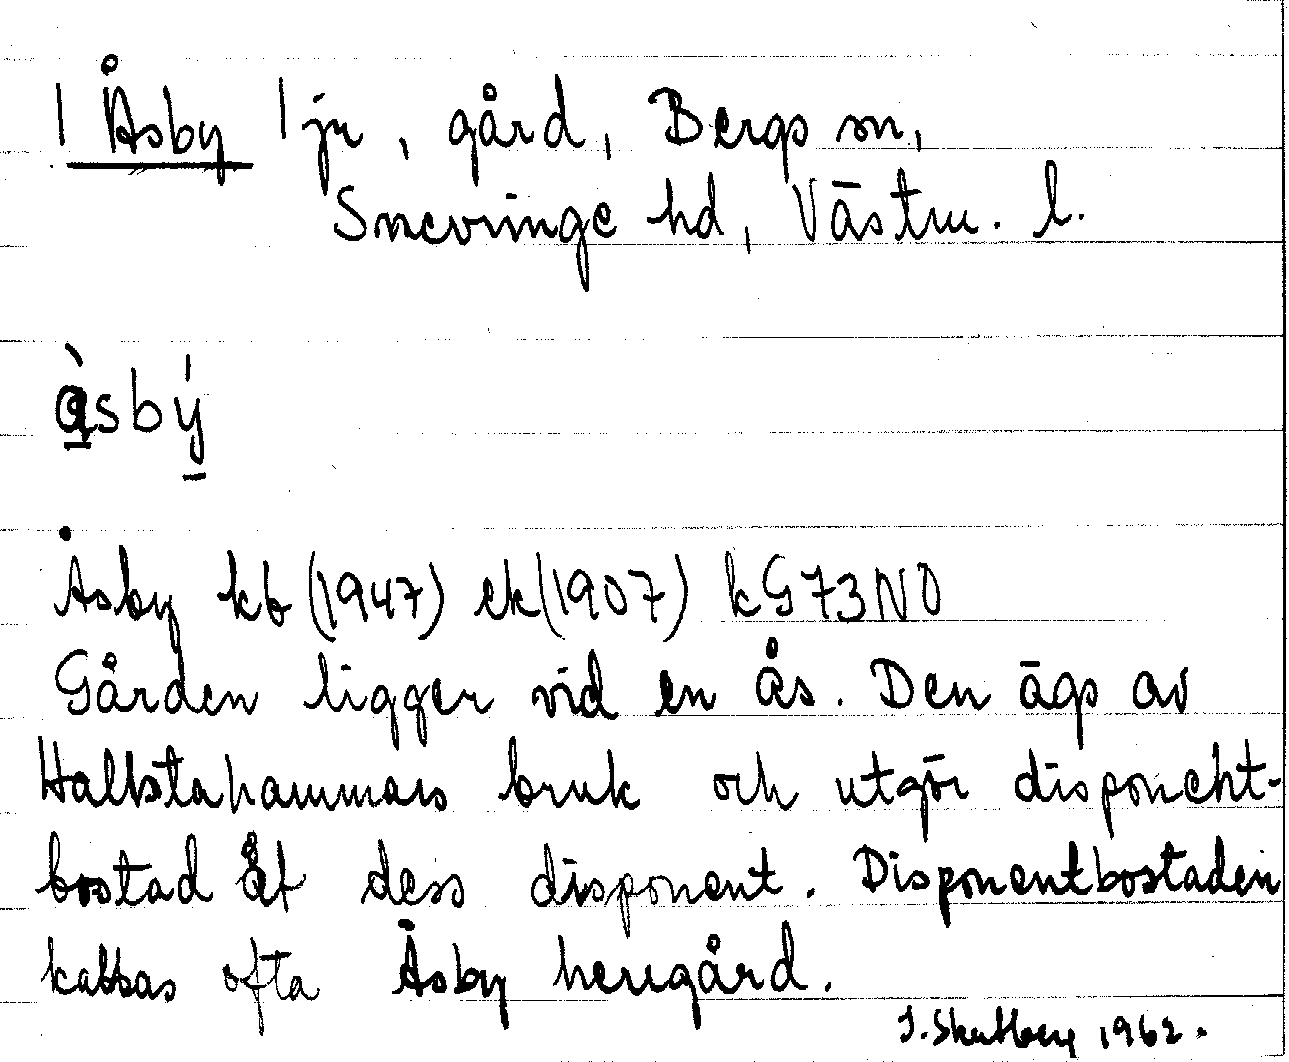 1 Åsby 1 ju, gård, Bergs sn,
Snevringe hd, Västm. l.
åsby
Åsby kb (1947) ek (1907) kG73NO
Gården ligger vid en ås. Den ägs av
Hallstahammars bruk och utgör disponent-
bostad åt dess disponent. Disponentbostaden
kallas ofta Åsby herrgård.
1962.